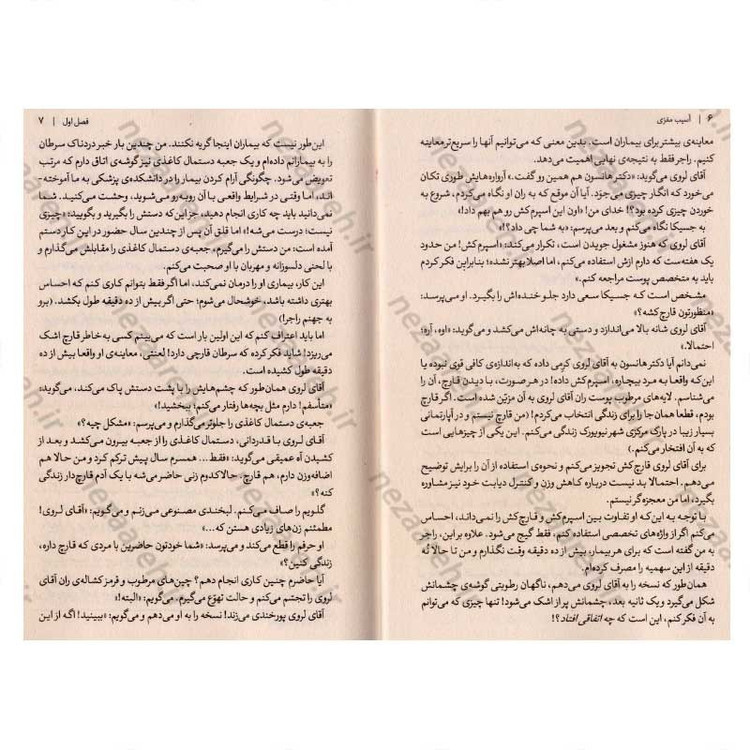 ۶ | آسیب مغزی
معاینه‌ی بیشتر برای بیماران است. بدین معنی که می‌توانیم آنها را سریع‌تر معاینه
کنیم. راجر فقط به نتیجه‌ی نهایی اهمیت می‌دهد.
آقای لروی می‌گوید: «دکتر هانسون هم همین رو گفت.» آرواره‌هایش طوری تکان
می‌خورد که انگار چیزی می‌جَوَد. آیا آن موقع که به ران او نگاه می‌کردم، شروع به
خوردن چیزی کرده بود؟! خدای من! «اون این اسپرم‌کش رو هم بهم داد!»
به جسیکا نگاه می‌کنم و بعد می‌پرسم: «به شما چی داد؟!»
آقای لروی که هنوز مشغول جویدن است، تکرار می‌کند: «اسپرم‌کش! من حدود
یک هفته‌ست که دارم ازش استفاده می‌کنم، اما اصلا بهتر نشده؛ بنابراین فکر کردم
باید به متخصص پوست مراجعه کنم.»
مشخص است که جسیکا سعی دارد جلو خنده‌اش را بگیرد. او می‌پرسد:
«منظورتون قارچ‌کشه؟»
آقای لروی شانه بالا می‌اندازد و دستی به چانه‌اش می‌کشد و می‌گوید: «اوه، آره؛
احتمالا.»
نمی‌دانم آیا دکتر هانسون به آقای لروی کرمی داده که به‌اندازه‌ی کافی قوی نبوده یا
این‌که واقعا به مرد بیچاره، اسپرم‌کش داده است! در هر صورت، با دیدن قارچ، آن را
می‌شناسم. لایه‌های مرطوب پوست ران آقای لروی به آن مزیّن شده است. اگر قارچ
بودم، قطعا همان‌جا را برای زندگی انتخاب می‌کردم! (من قارچ نیستم و در آپارتمانی
بسیار زیبا در پارک مرکزی شهر نیویورک زندگی می‌کنم. این یکی از چیزهایی است
که به آن افتخار می‌کنم.)
برای آقای لروی قارچ‌کش تجویز می‌کنم و نحوه‌ی استفاده از آن را برایش توضیح
می‌دهم. احتمالا بد نیست درباره کاهش وزن و کنترل دیابت خود نیز مشاوره
بگیرد، اما من معجزه‌گر نیستم.
با توجه به این‌که او تفاوت بین اسپرم‌کش و قارچ‌کش را نمی‌داند، احساس
می‌کنم اگر از واژه‌های تخصصی استفاده کنم، فقط گیج می‌شود. علاوه بر این، راجر
به من گفته است که برای هر بیمار، بیش از ده دقیقه وقت نگذارم و من تا حالا نُه
دقیقه از این سهمیه را مصرف کرده‌ام.
همان‌طور که نسخه را به آقای لروی می‌دهم، ناگهان رطوبتی گوشه‌ی چشمانش
شکل می‌گیرد و یک ثانیه بعد، چشمانش پر از اشک می‌شود! تنها چیزی که می‌توانم
به آن فکر کنم، این است که چه اتفاقی افتاد؟!
فصل اول | ۷
این‌طور نیست که بیماران اینجا گریه نکنند. من چندین بار خبر دردناک سرطان
را به بیمارانم داده‌ام و یک جعبه دستمال کاغذی نیز گوشه‌ی اتاق دارم که مرتب
تعویض می‌شود. چگونگی آرام کردن بیمار را در دانشکده‌ی پزشکی به ما آموخته‌-
اند، اما وقتی در شرایط واقعی با آن روبه‌رو می‌شوید، وحشت می‌کنید. شما
نمی‌دانید باید چه کاری انجام دهید، جز این‌که دستش را بگیرید و بگویید: «چیزی
نیست؛ درست می‌شه!» اما قلق آن پس از چندین سال حضور در این کار دستم
آمده است: من دستش را می‌گیرم، جعبه‌ی دستمال کاغذی را مقابلش می‌گذارم و
با لحنی دلسوزانه و مهربان با او صحبت می‌کنم.
این کار، بیماری او را درمان نمی‌کند، اما اگر فقط بتوانم کاری کنم که احساس
بهتری داشته باشد، خوشحال می‌شوم؛ حتی اگر بیش از ده دقیقه طول بکشد. (برو
به جهنم راجر!)
اما باید اعتراف کنم که این اولین بار است که می‌بینم کسی به خاطر قارچ اشک
می‌ریزد! شاید فکر کرده که سرطان قارچی دارد! لعنتی، معاینه‌ی او واقعا بیش از ده
دقیقه طول کشیده است.
آقای لروی همان‌طور که چشم‌هایش را با پشت دستش پاک می‌کند، می‌گوید:
«متأسفم! دارم مثل بچه‌ها رفتار می‌کنم؛ ببخشید!»
جعبه‌ی دستمال کاغذی را جلوتر می‌گذارم و می‌پرسم: «مشکل چیه؟»
آقای لروی با قدردانی، دستمال کاغذی را از جعبه بیرون می‌کشد و بعد از
کشیدن آه عمیقی می‌گوید: «فقط... همسرم سال پیش ترکم کرد و من حالا هم
اضافه‌وزن دارم، هم قارچ. حالا کدوم زنی حاضر می‌شه با یک آدم قارچ‌دار زندگی
کنه؟»
گلویم را صاف می‌کنم. لبخندی مصنوعی می‌زنم و می‌گویم: «آقای لروی!
مطمئنم زن‌های زیادی هستن که...»
او حرفم را قطع می‌کند و می‌پرسد: «شما خودتون حاضرین با مردی که قارچ داره،
زندگی کنین؟»
آیا حاضرم چنین کاری انجام دهم؟ چین‌های مرطوب و قرمز کشاله‌ی ران آقای
لروی را تجسّم می‌کنم و حالت تهوّع می‌گیرم. می‌گویم: «البته!»
آقای لروی پوزخندی می‌زند! نسخه را به او می‌دهم و می‌گویم: «ببینید! اگه از این
nezamdeh.ir